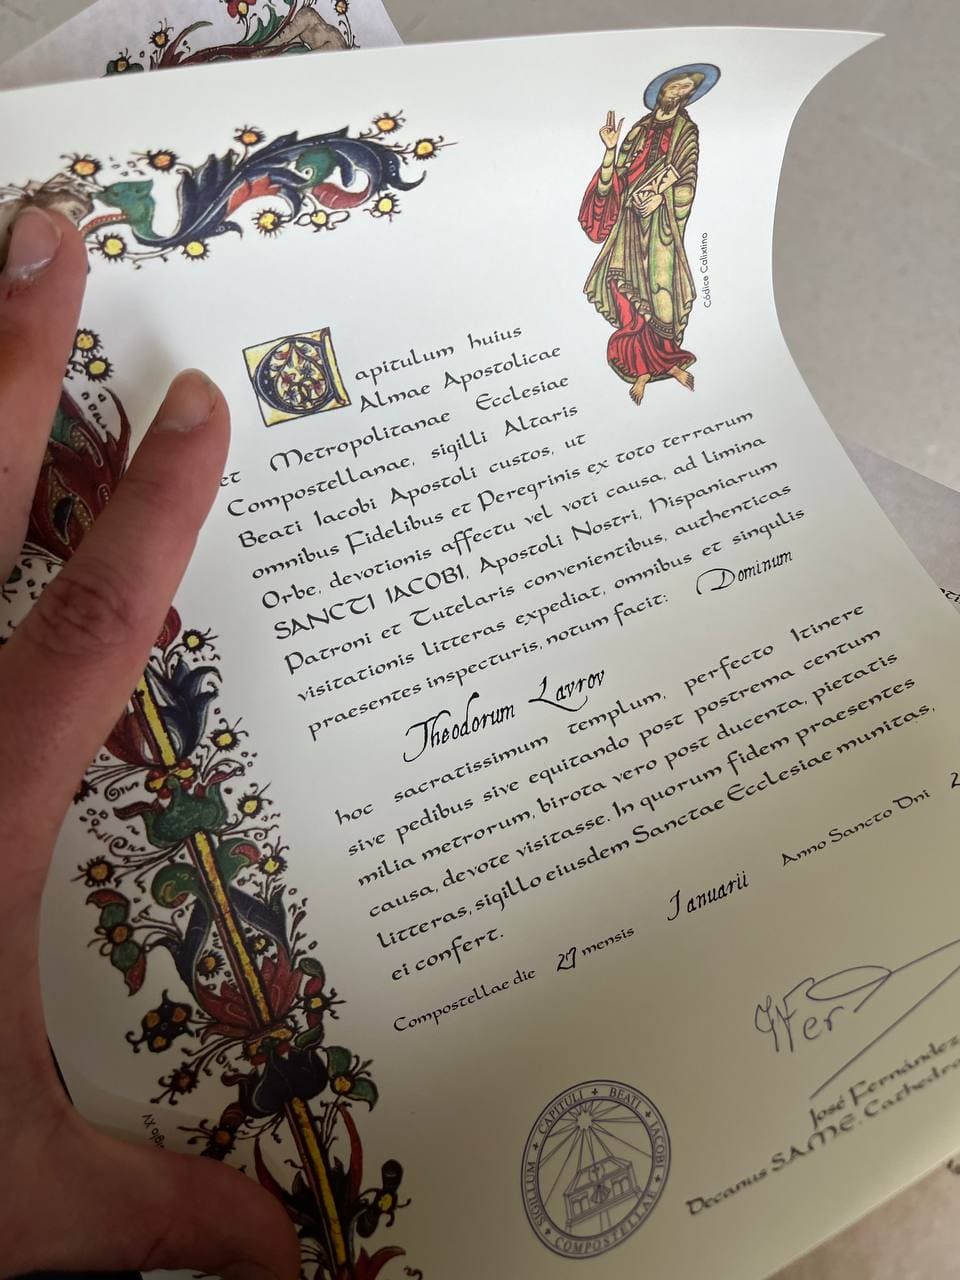 Códice Calixtino
Capitulum huius
Almae Apostolicae
et Metropolitanae Ecclesiae
Compostellanae, sigilli Altaris
Beati Iacobi Apostoli custos, ut
omnibus Fidelibus et Peregrinis ex toto terrarum
Orbe, devotionis affectu vel voti causa, ad limina
SANCTI IACOBI, Apostoli Nostri, Hispaniarum
Patroni et Tutelaris convenientibus, authenticas
visitationis litteras expediat, omnibus et singulis
praesentes inspecturis, notum facit: Dominum
Theodorum Lavrov
hoc sacratissimum templum, perfecto Itinere
sive pedibus sive equitando post postrema centum
milia metrorum, birota vero post ducenta, pietatis
causa, devote visitasse. In quorum fidem praesentes
litteras, sigillo eiusdem Sanctae Ecclesiae munitas,
ei confert.
Compostellae die 27 mensis Ianuarii Anno Sancto Dni 2
José Fernández
Decanus S.A.M.E. Cathedra
SIGILLUM CAPITULI BEATI IACOBI COMPOSTELLAE
XV